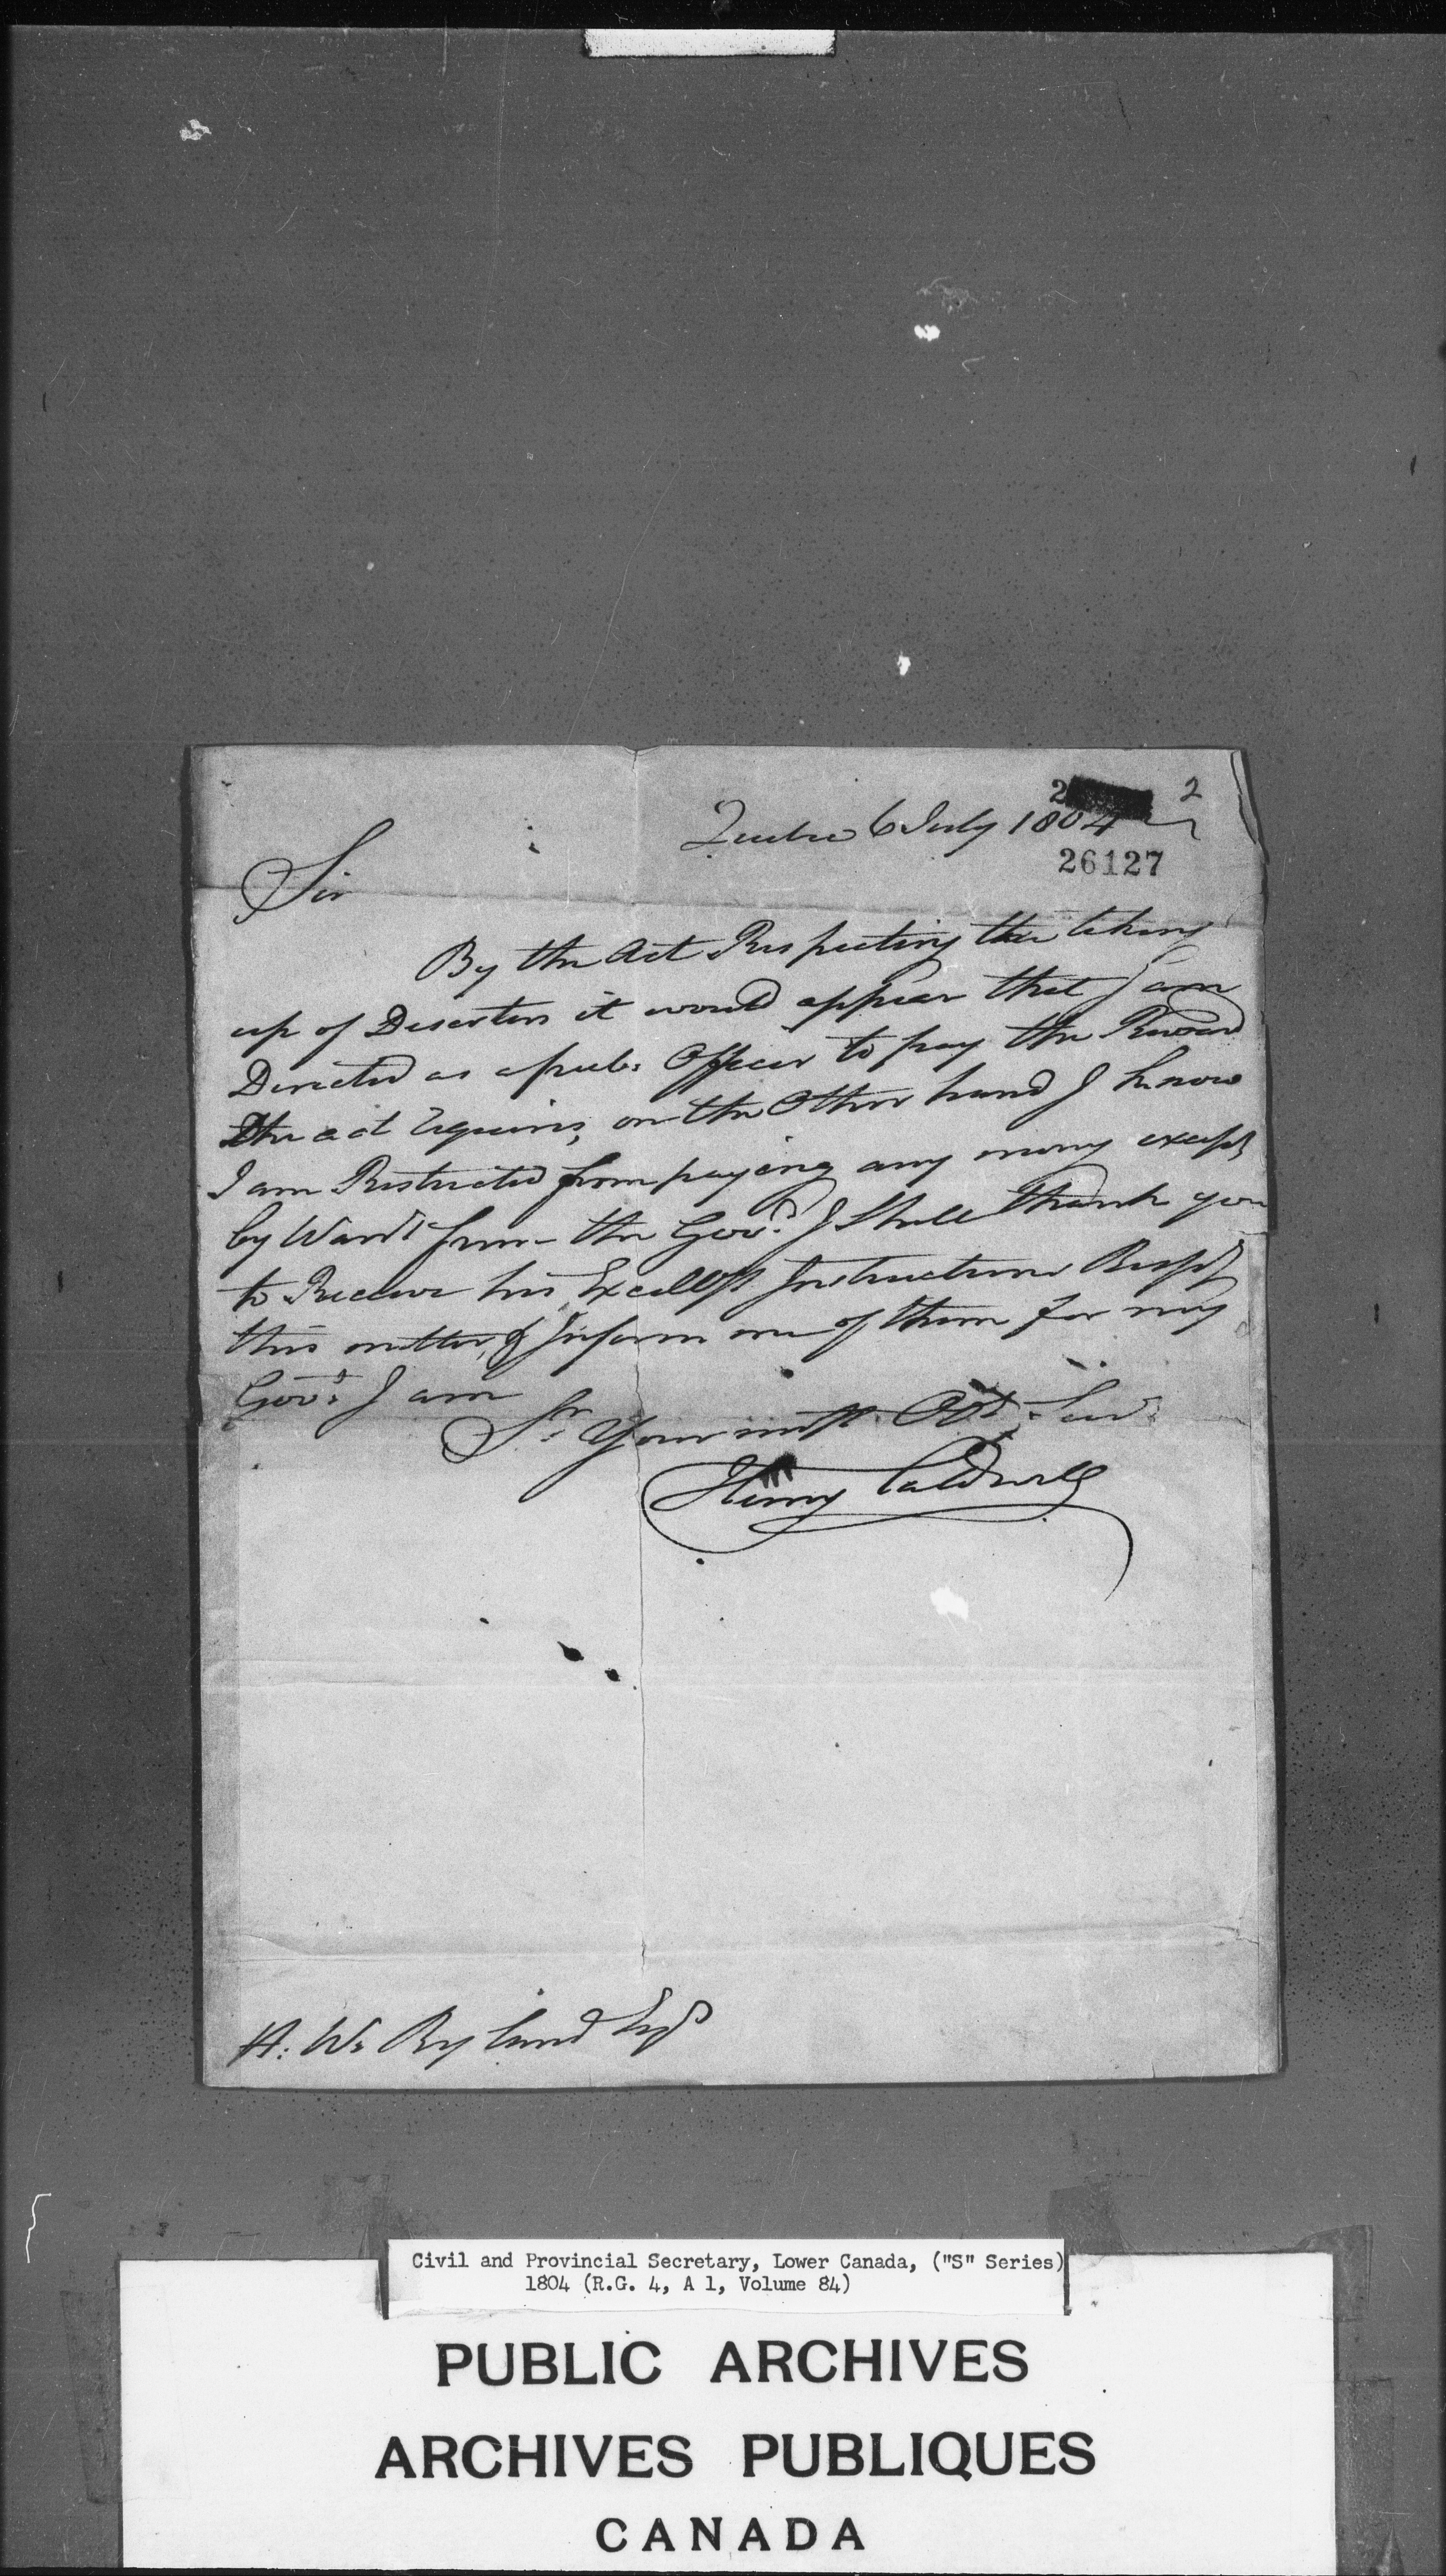 2 2
Quebec 6 July 1804
26127
Sir
By the Act Respecting the taking
up of Deserters it would appear that I am
Directed as a pub: Officer to pay the Reward
The act requires, on the Other hand I know
I am Restricted from paying any money except
by Warrt from the Govr. I Shall thank you
to Receive his Excellys Instructions Respg
this matter, & Inform me of them for my
Govt: I am
Sr: Your most Obt: Servt:
Henry Caldwell
H: W: Ryland Esqr
Civil and Provincial Secretary, Lower Canada, ("S" Series)
1804 (R.G. 4, A 1, Volume 84)
PUBLIC ARCHIVES
ARCHIVES PUBLIQUES
CANADA